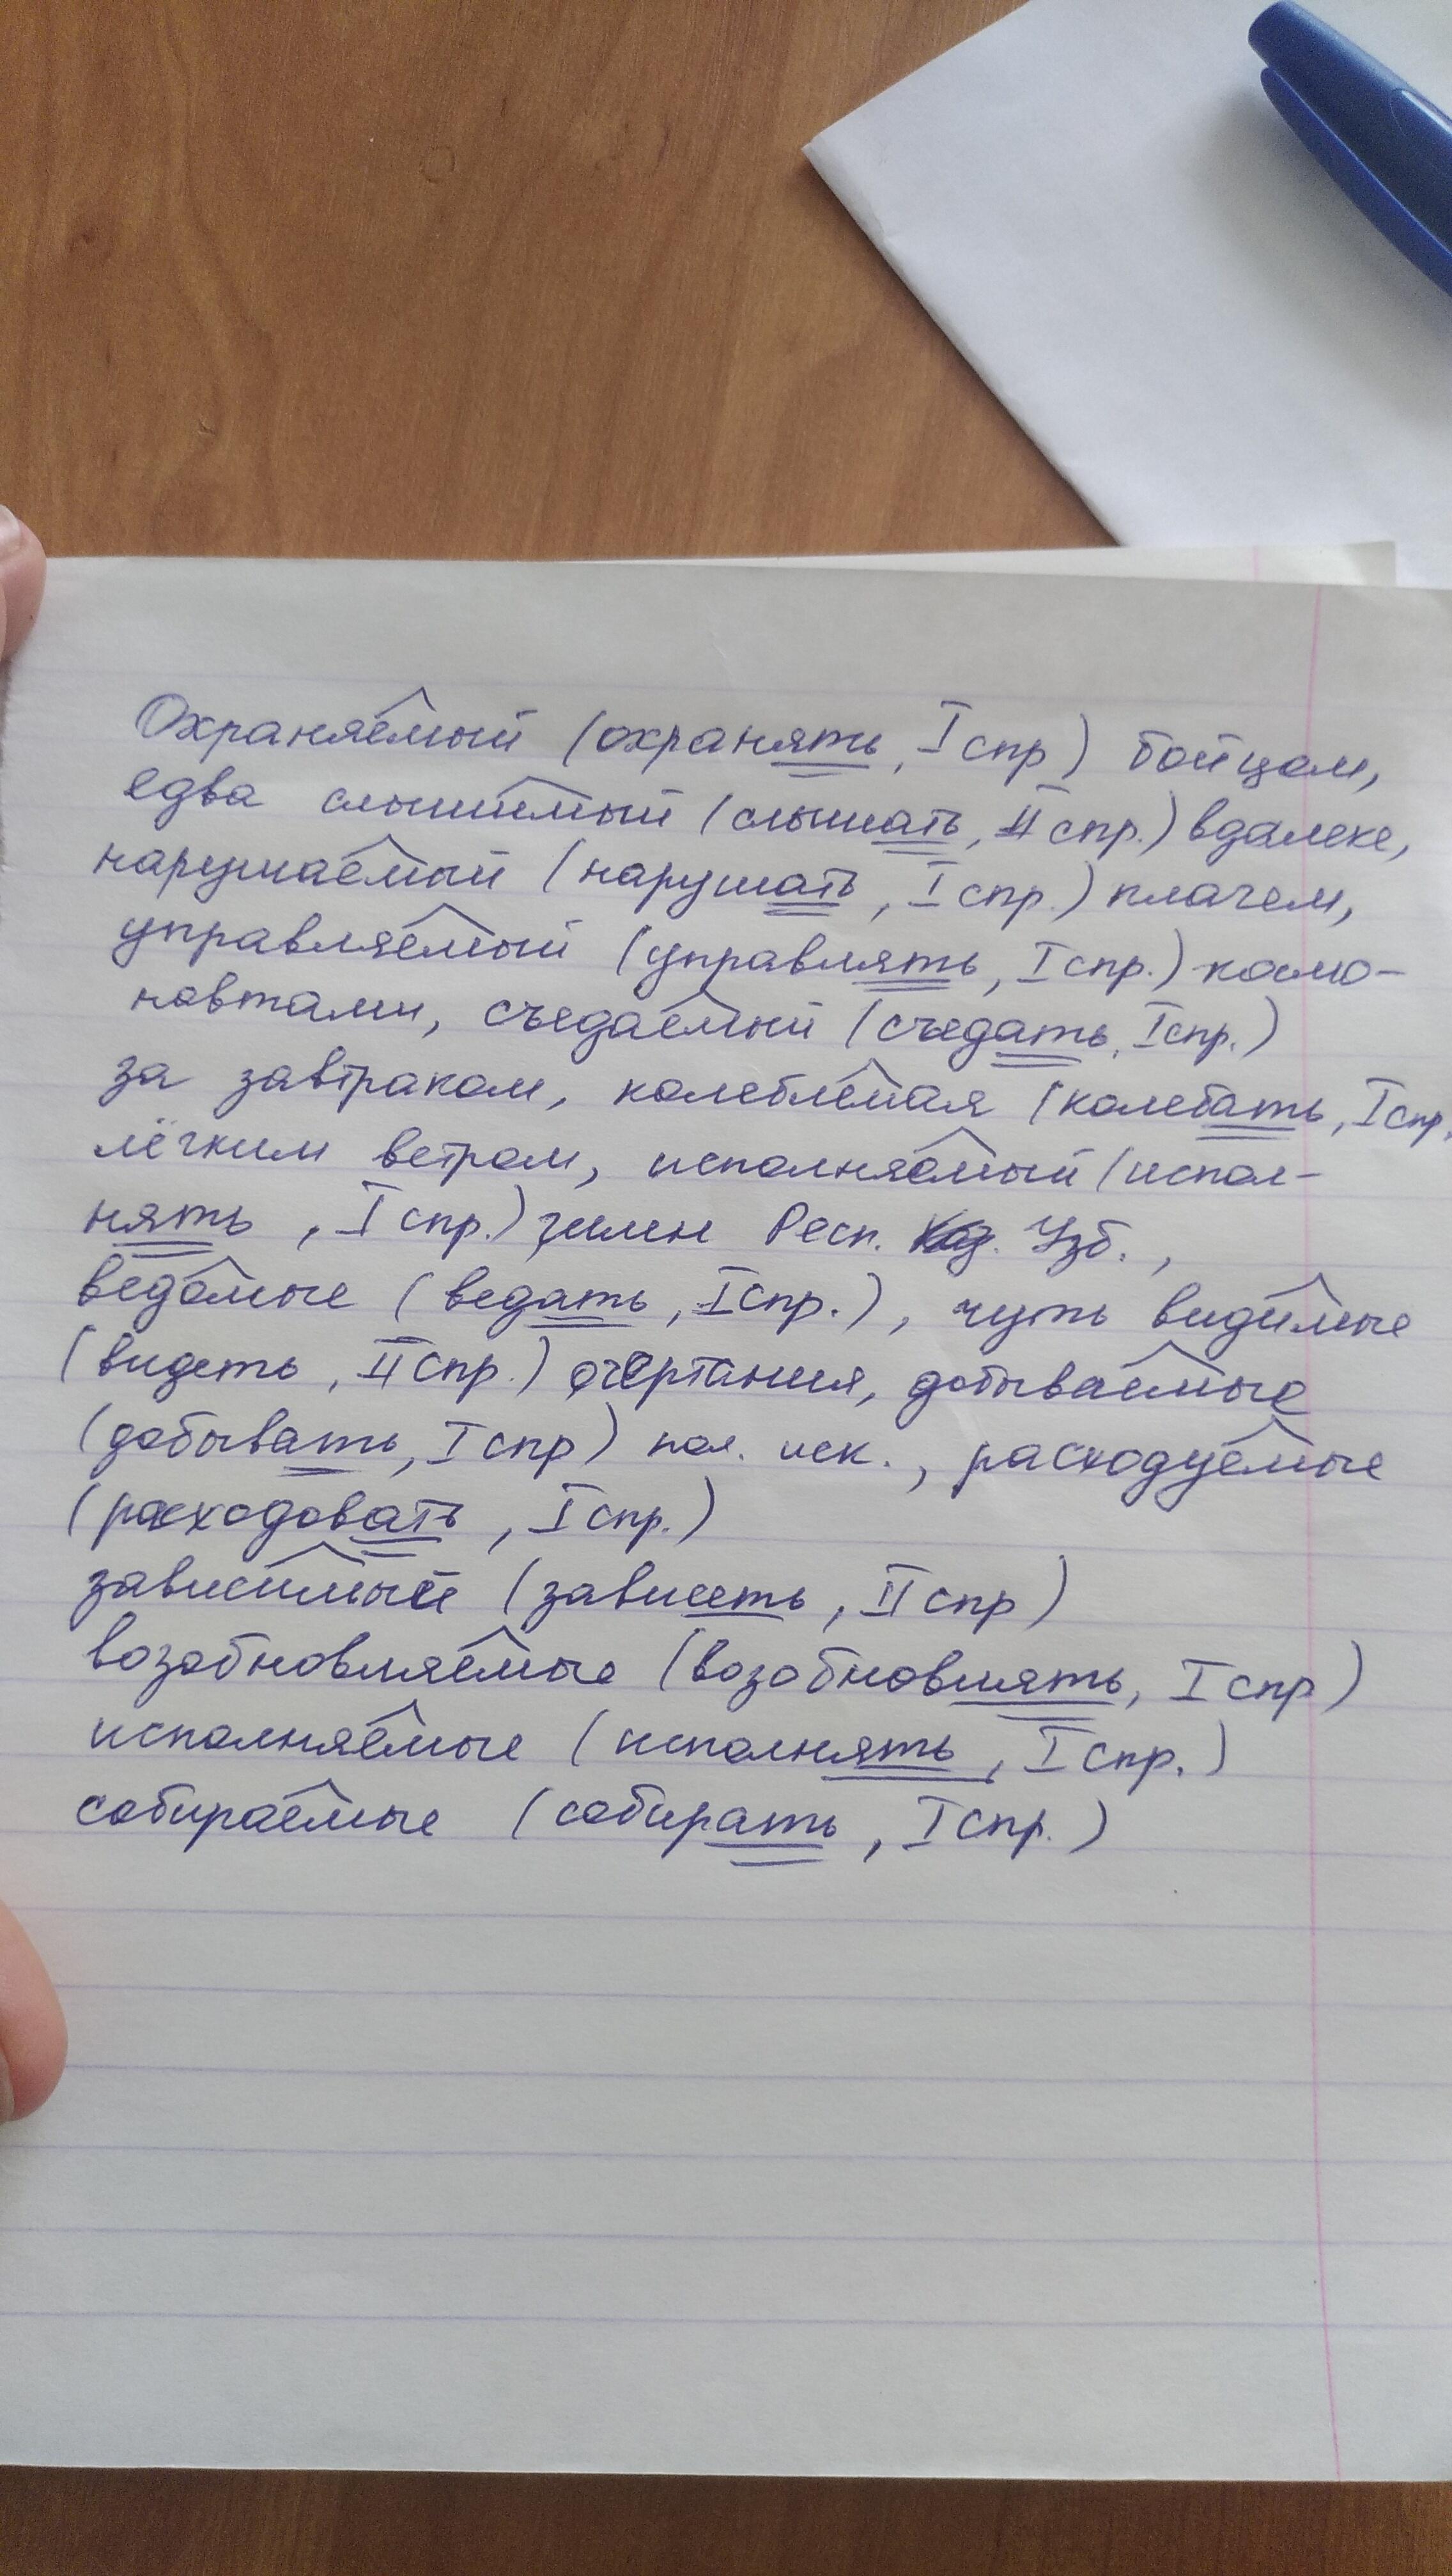 Охраняемый (охранять, I спр) бойцом,
едва слышимый (слышать, II спр.) вдалеке,
нарушаемый (нарушать, I спр.) плачем,
управляемый (управлять, I спр.) космо-
навтами, съедаемый (съедать, I спр.)
за завтраком, колеблемая (колебать, I спр.
лёгким ветром, исполняемый (испол-
нять, I спр.) гимн Респ. Узб.,
ведомые (ведать, I спр.), чуть видимые
(видеть, II спр.) очертания, добываемые
(добывать, I спр) пол. иск., расходуемые
(расходовать, I спр.)
зависимый (зависеть, II спр)
возобновляемые (возобновлять, I спр)
исполняемые (исполнять, I спр.)
собираемые (собирать, I спр.)